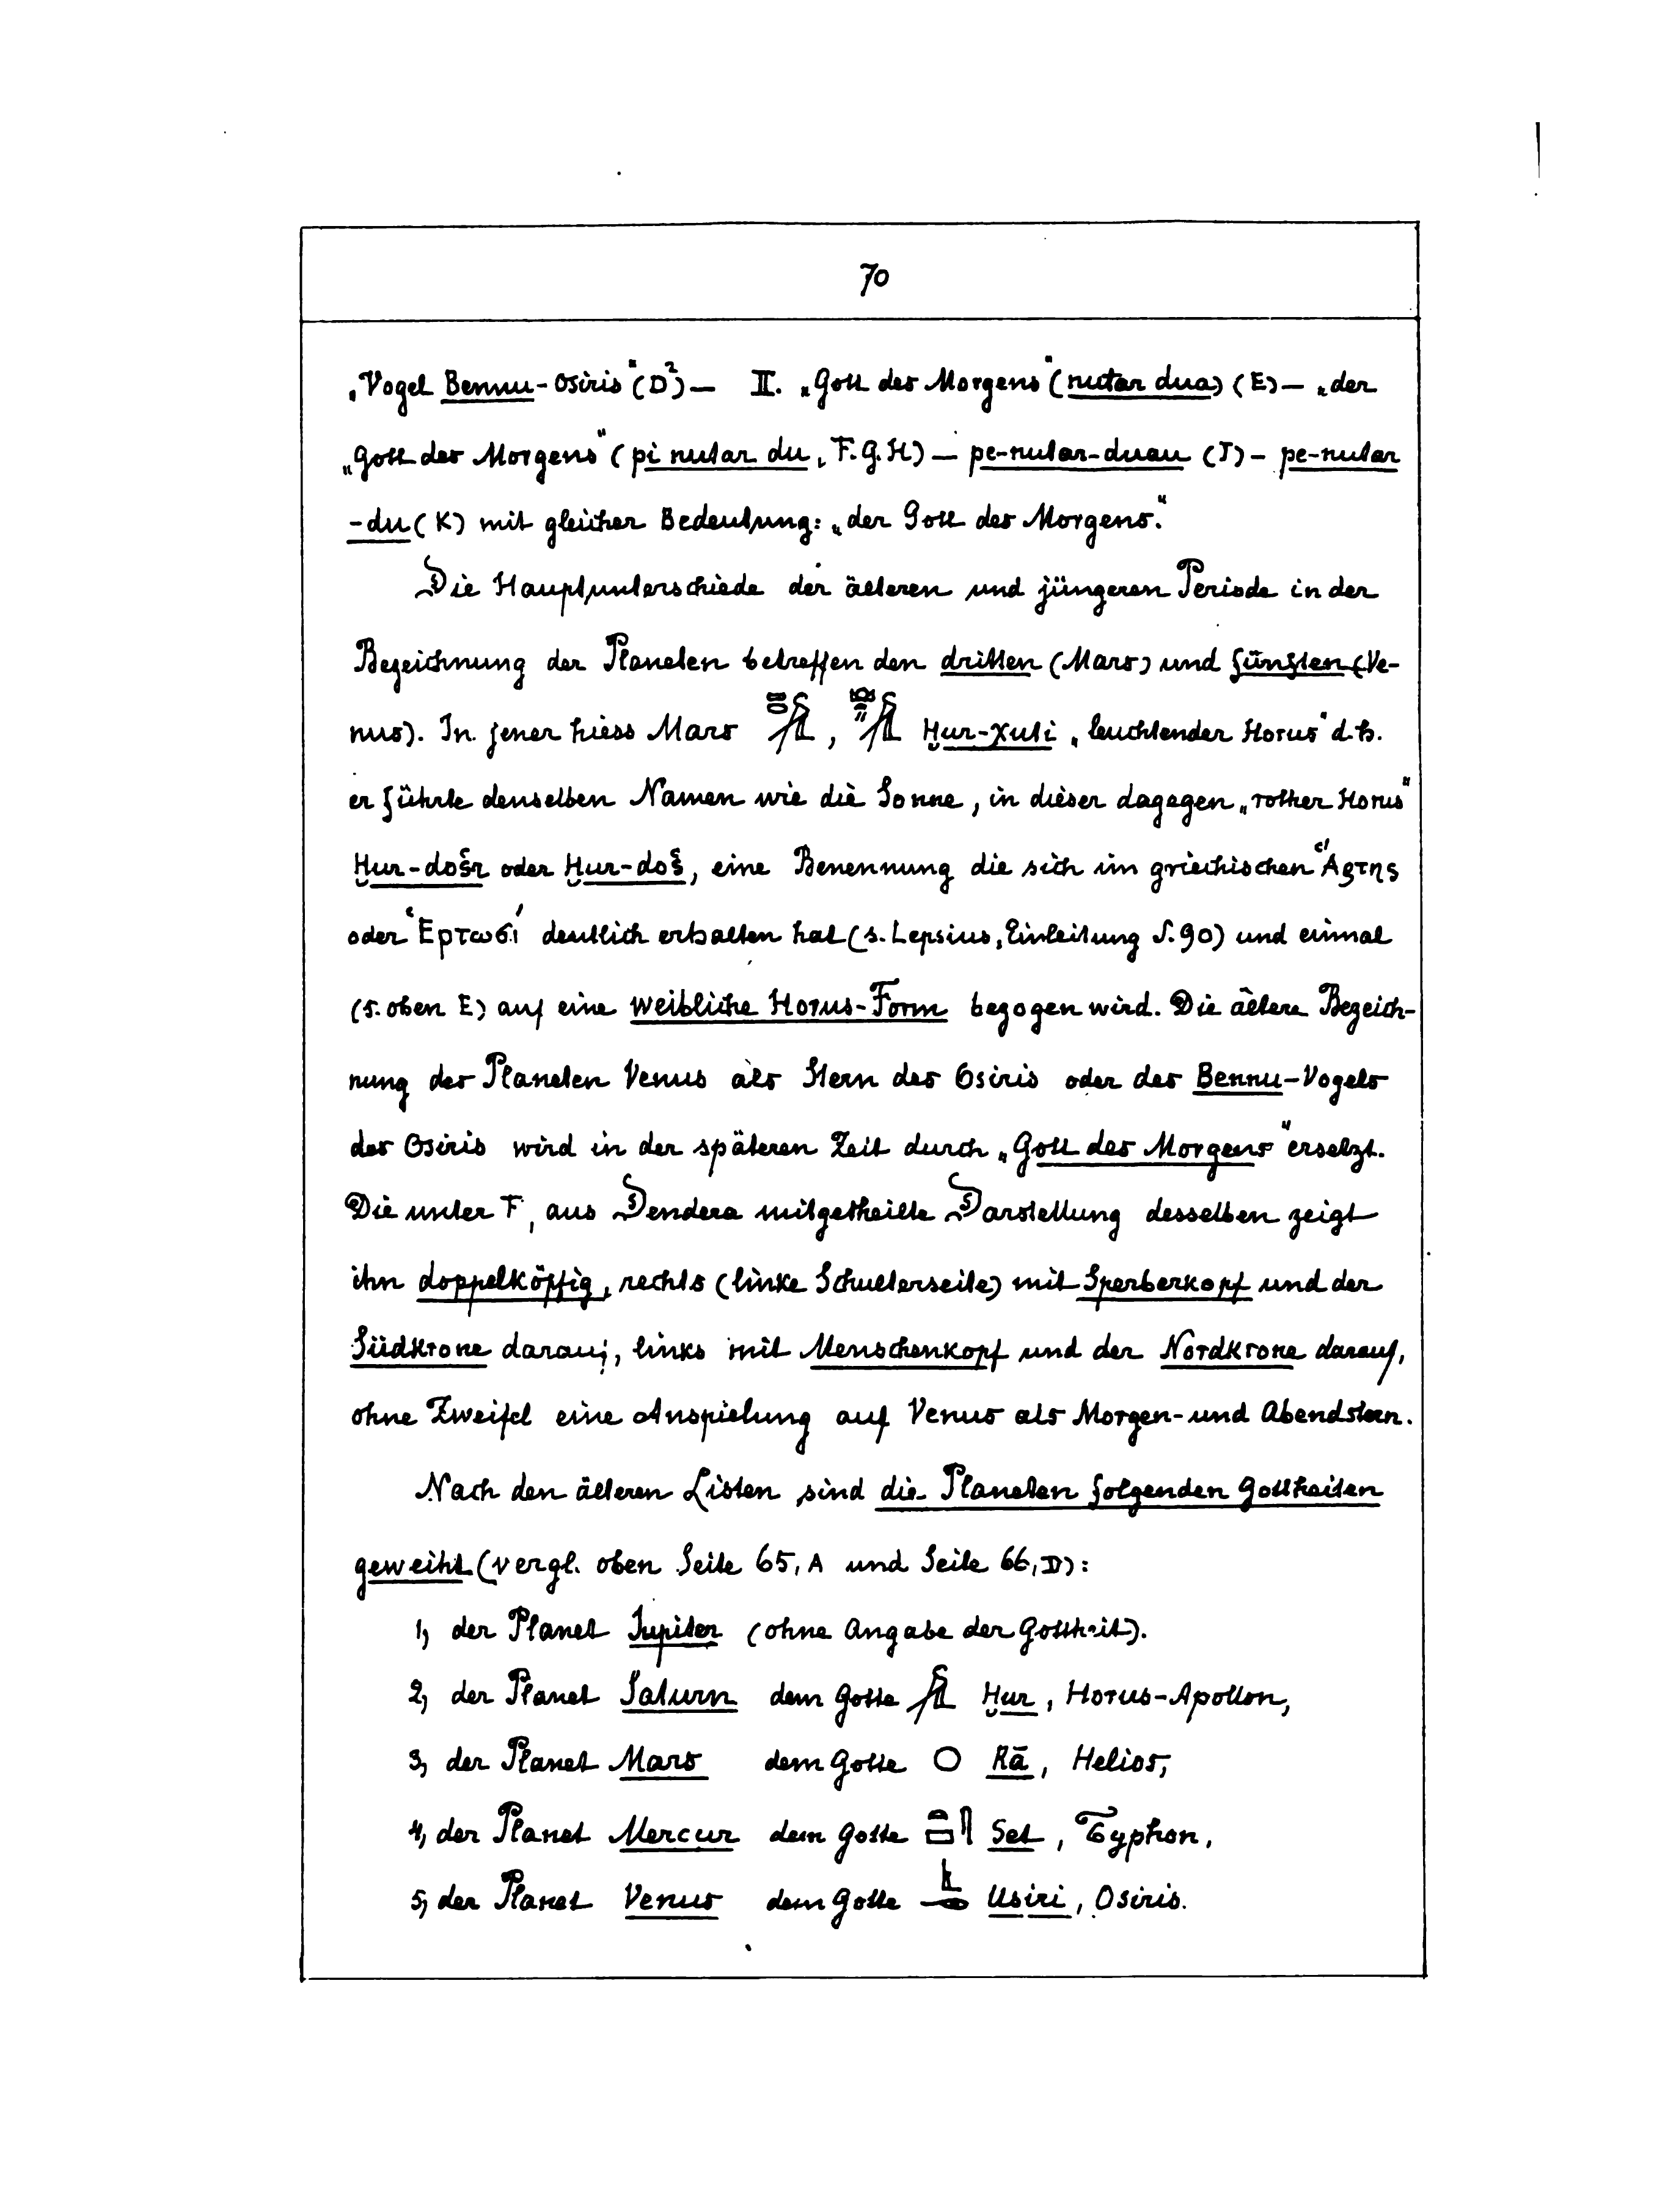 70
„Vogel Bennu-Osiris“ (D²) — II. „Gott des Morgens“ (nutar dua) (E) — „der
„Gott des Morgens“ (pi nutar du, F. G. H) — pe-nutar-duau (J) — pe-nutar
-du (K) mit gleicher Bedeutung: „der Gott des Morgens.“
Die Hauptunterschiede der älteren und jüngeren Periode in der
Bezeichnung der Planeten betreffen den dritten (Mars) und fünften (Ve-
nus). In jener hiess Mars , Ḥur-χuti „leuchtender Horus“ d. h.
er führte denselben Namen wie die Sonne, in dieser dagegen „rother Horus“
Ḥur-došr oder Ḥur-doš, eine Benennung die sich im griechischen Ἅρτης
oder Ἑρτωσί deutlich erhalten hat (s. Lepsius, Einleitung S. 90) und einmal
(s. oben E) auf eine weibliche Horus-Form bezogen wird. Die ältere Bezeich-
nung des Planeten Venus als Stern des Osiris oder des Bennu-Vogels
des Osiris wird in der späteren Zeit durch „Gott des Morgens“ ersetzt.
Die unter F, aus Dendera mitgetheilte Darstellung desselben zeigt
ihn doppelköpfig, rechts (linke Schulterseite) mit Sperberkopf und der
Südkrone darauf, links mit Menschenkopf und der Nordkrone darauf,
ohne Zweifel eine Anspielung auf Venus als Morgen- und Abendstern.
Nach den älteren Listen sind die Planeten folgenden Gottheiten
geweiht (vergl. oben Seite 65, A und Seite 66, D):
1, der Planet Jupiter (ohne Angabe der Gottheit).
2, der Planet Saturn dem Gotte Ḥur, Horus-Apollon,
3, der Planet Mars dem Gotte Rā, Helios,
4, der Planet Mercur dem Gotte Set, Typhon,
5, der Planet Venus dem Gotte Usiri, Osiris.